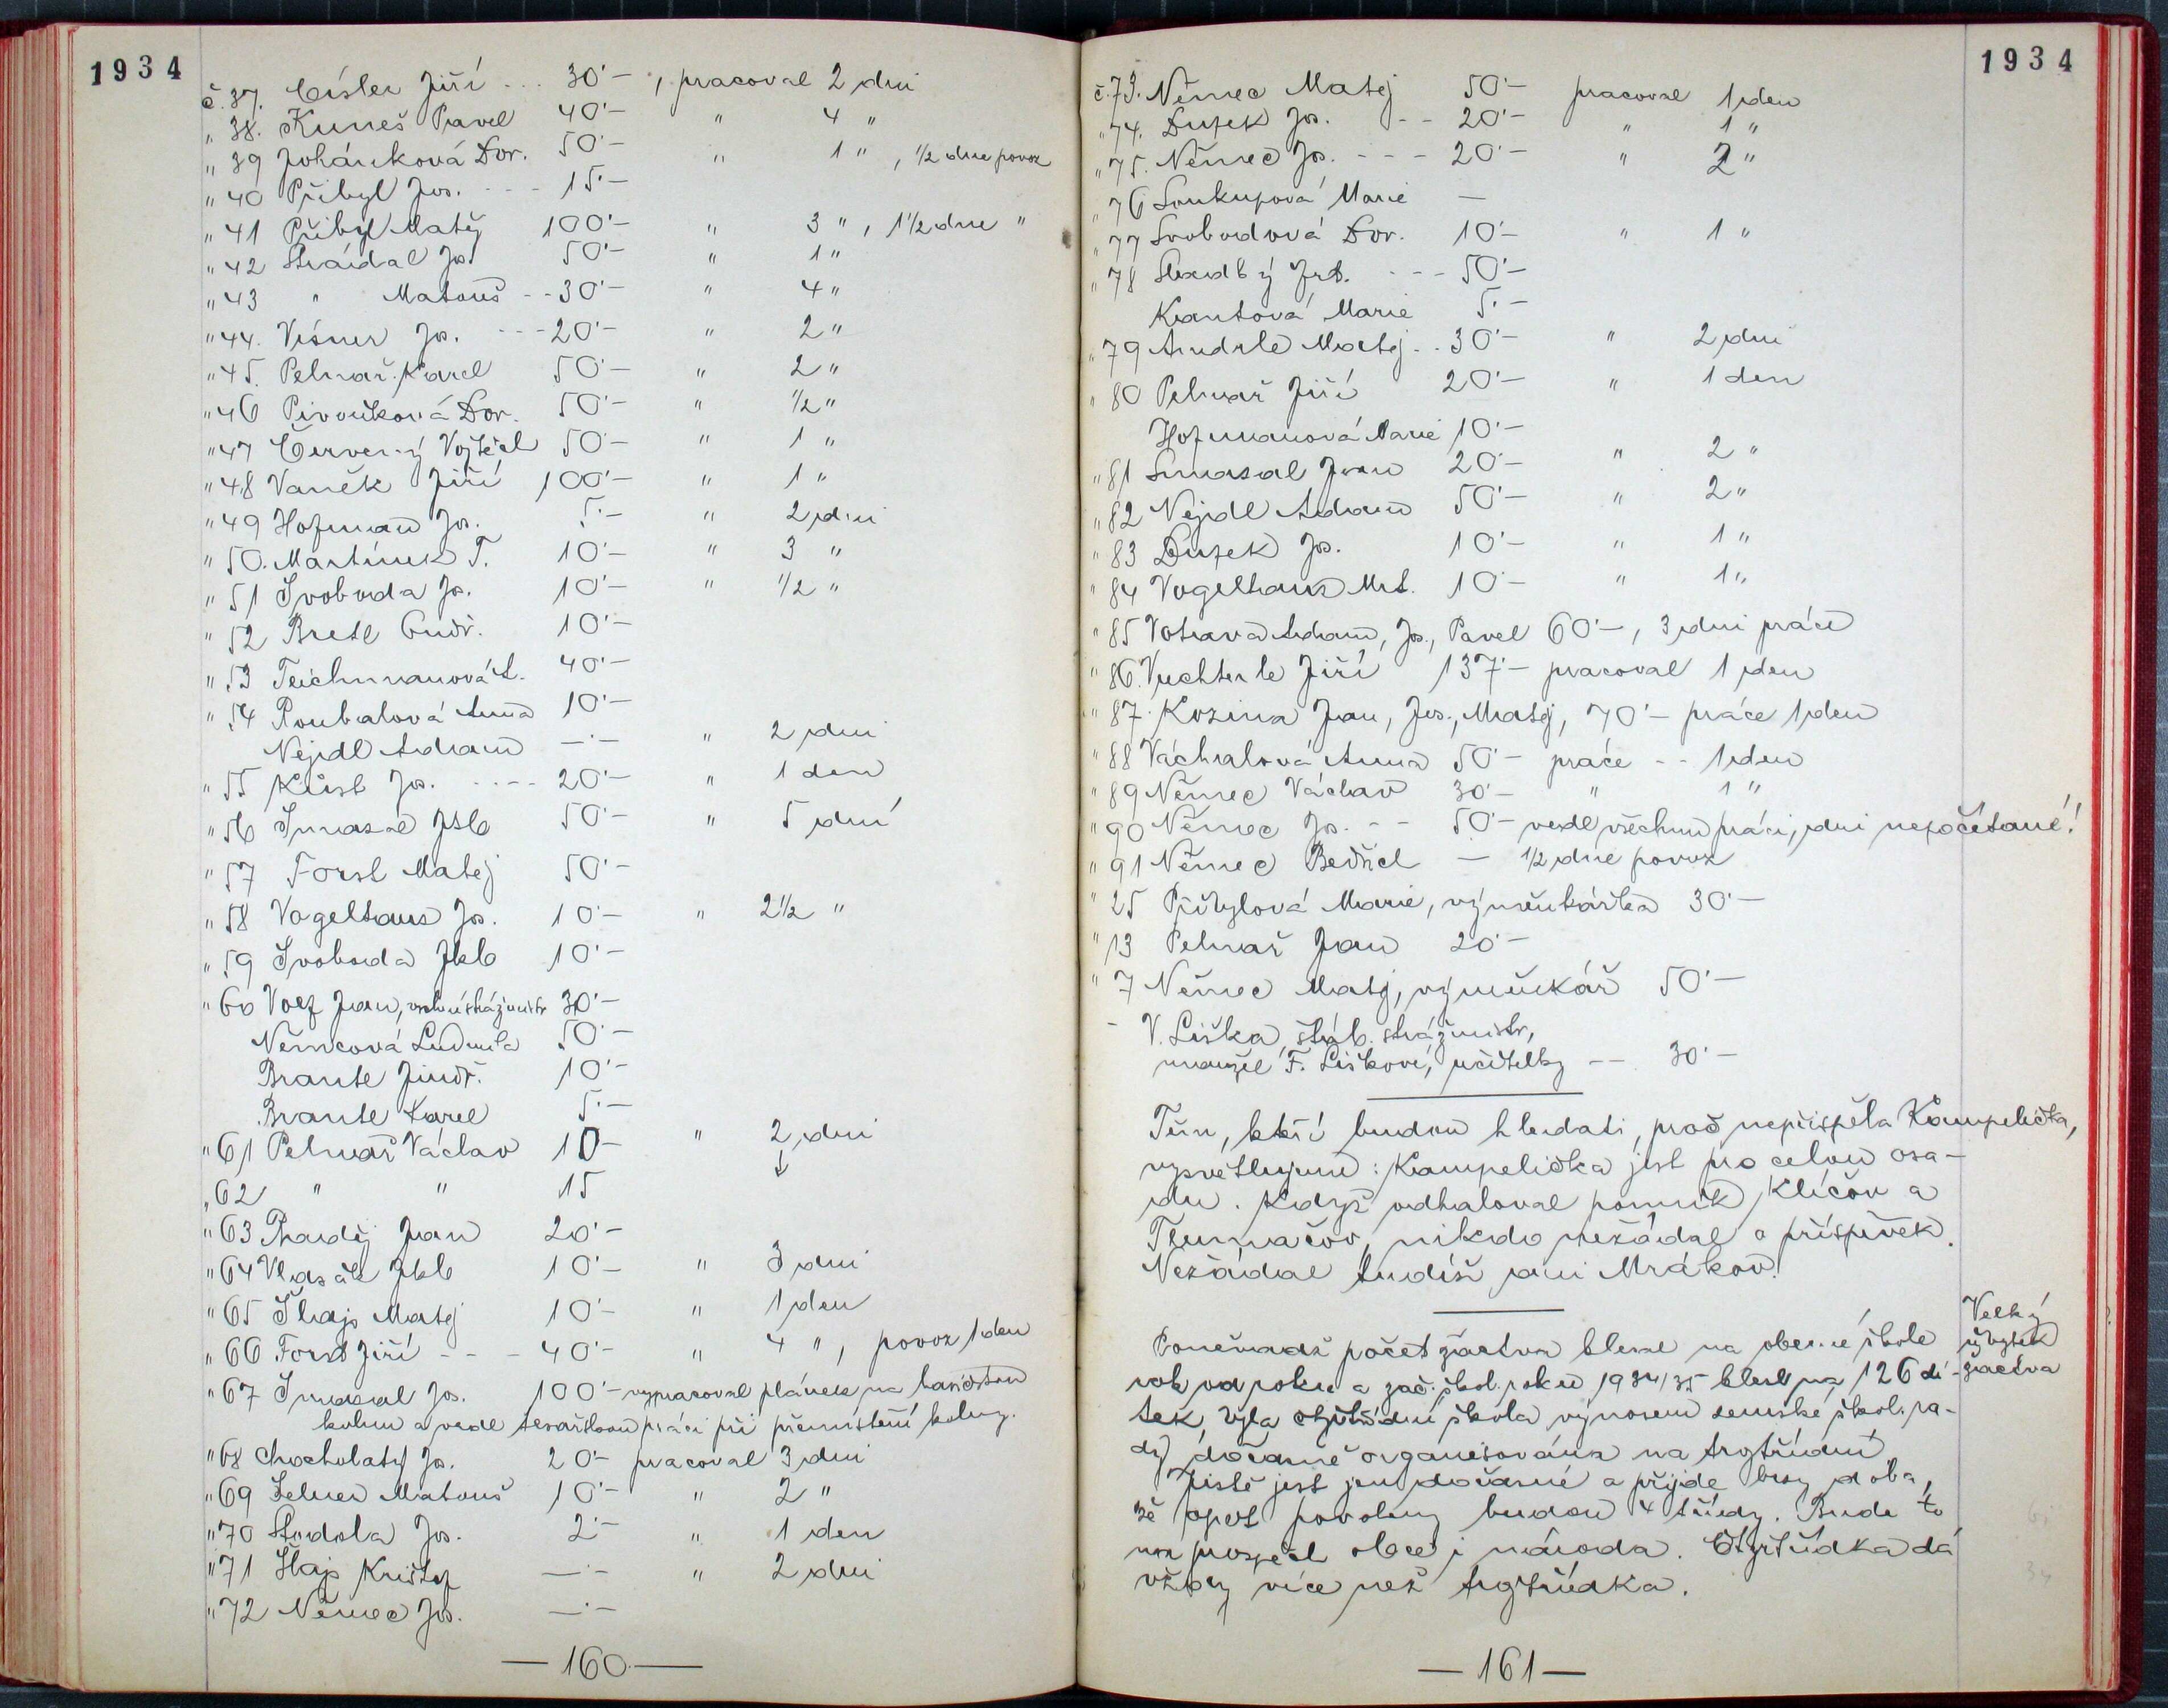 1934
č. 37. Císler Jiří ... 30·— , pracoval 2 dni
" 38. Kuneš Pavel 40·— " 4 "
" 39 Johánková Dor. 50·— " 1 " , 1/2 dne povoz
" 40 Přibyl Jos. - - - 15·—
" 41 Přibyl Matěj 100·— " 3 " , 1 1/2 dne "
" 42 Strádal Jos. 50·— " 1 "
" 43 " Matouš - - 30·— " 4 "
" 44. Višner Jos. - - - 20·— " 2 "
" 45. Pelnař Karel 50·— " 2 "
" 46 Pivoňková Dor. 50·— " 1/2 "
" 47 Červený Vojtěch 50·— " 1 "
" 48 Vaněk Jiří 100·— " 1 "
" 49 Hofman Jos. 5·— " 2 dni
" 50. Martínek T. 10·— " 3 "
" 51 Svoboda Jos. 10·— " 1/2 "
" 52 Bretl Ondř. 10·—
" 53 Teichmanová A. 40·—
" 54 Roubalová Anna 10·—
Nejdl Adam —·— " 2 dni
" 55 Jos. - - - - 20·— " 1 den
" 56 Smazal Jkb 50·— " 5 dní
" 57 Forst Matěj 50·—
" 58 Vogeltanz Jos. 10·— " 2 1/2 "
" 59 Svoboda Jkb 10·—
" 60 Volf Jan, vrch. strážmistr 30·—
Němcová Ludmila 50·—
Brantl Jindř. 10·—
Brantl Karel 5·—
" 61 Pelnař Václav 10— " 2 dni
" 62 " " 15 ↓
" 63 Jan 20·—
" 64 Vlasák Jkb 10·— " 3 dni
" 65 Šlajs Matěj 10·— " 1 den
" 66 Forst Jiří - - - 40·— " 4 " , povoz 1 den
" 67 Smazal Jos. 100·— vypracoval plánek na hasičskou
kolnu a vedl tesařskou práci při přemístění kolny.
" 68 Chocholatý Jos. 20·— pracoval 3 dni
" 69 Zelner Matouš 10·— " 2 "
" 70 Stodola Jos. 2·— " 1 den
" 71 Šlajs Krištof —·— " 2 dni
" 72 Němec Jos. —·—
— 160 —
1934
č. 73. Němec Matěj 50·— pracoval 1 den
" 74. Dufek Jos. - - 20·— " 1 "
" 75. Němec Jos. - - - 20·— " 2 "
" 76 Soukupová Marie —
" 77 Svobodová Dor. 10·— " 1 "
" 78 Sladký Jkb. - - - 50·—
Kantová Marie 5·—
" 79 Andrle Matěj . . 30·— " 2 dni
" 80 Pelnař Jiří 20·— " 1 den
Hofmanová Marie 10·—
" 81 Smazal Jan 20·— " 2 "
" 82 Nejdl Adam 50·— " 2 "
" 83 Dufek Jos. 10·— " 1 "
" 84 Vogeltanz Mat. 10·— " 1 "
" 85 Votava Adam, Jos., Pavel 60·—, 3 dni práce
" 86. Vuchterle Jiří 137·— pracoval 1 den
" 87. Kozina Jan, Jos., Matěj, 70·— práce 1 den
" 88 Váchalová Anna 50·— práce - - 1 den
" 89 Němec Václav 30·— " 1 "
" 90 Němec Jos. - - 50·— vedl všechnu práci, dni nepočítané!
" 91 Němec Bedřich — 1/2 dne povoz
" 25 Přibylová Marie, výměnkářka 30·—
" 13 Pelnař Jan 20·—
" 7 Němec Matěj, výměnkář 50·—
- V. Liška, štáb. strážmistr,
manžel F. Liškové, učitelky — 30·—
Těm, kteří budou hledati, proč nepřispěla Kampelička,
vysvětlujeme: Kampelička jest pro celou osa-
du. Když odhaloval pomník Klíčov a
Tlumačov, nikdo nežádal o příspěvek.
Nežádal tudíž ani Mrákov.
Velký
úbytek
žactva
Poněvadž počet žactva klesal na obecné škole
rok od roku a zač. škol. roku 1934/35 klesl na 126 dí-
tek, byla čtyřtřídní škola výnosem zemské škol. ra-
dy dočasně organisována na trojtřídní.
Jistě jest jen dočasné a přijde brzy doba,
že opět povoleny budou 4 třídy. Bude to
na prospěch obce i národa. Čtyřtřídka dá
vždy více než trojtřídka.
— 161 —